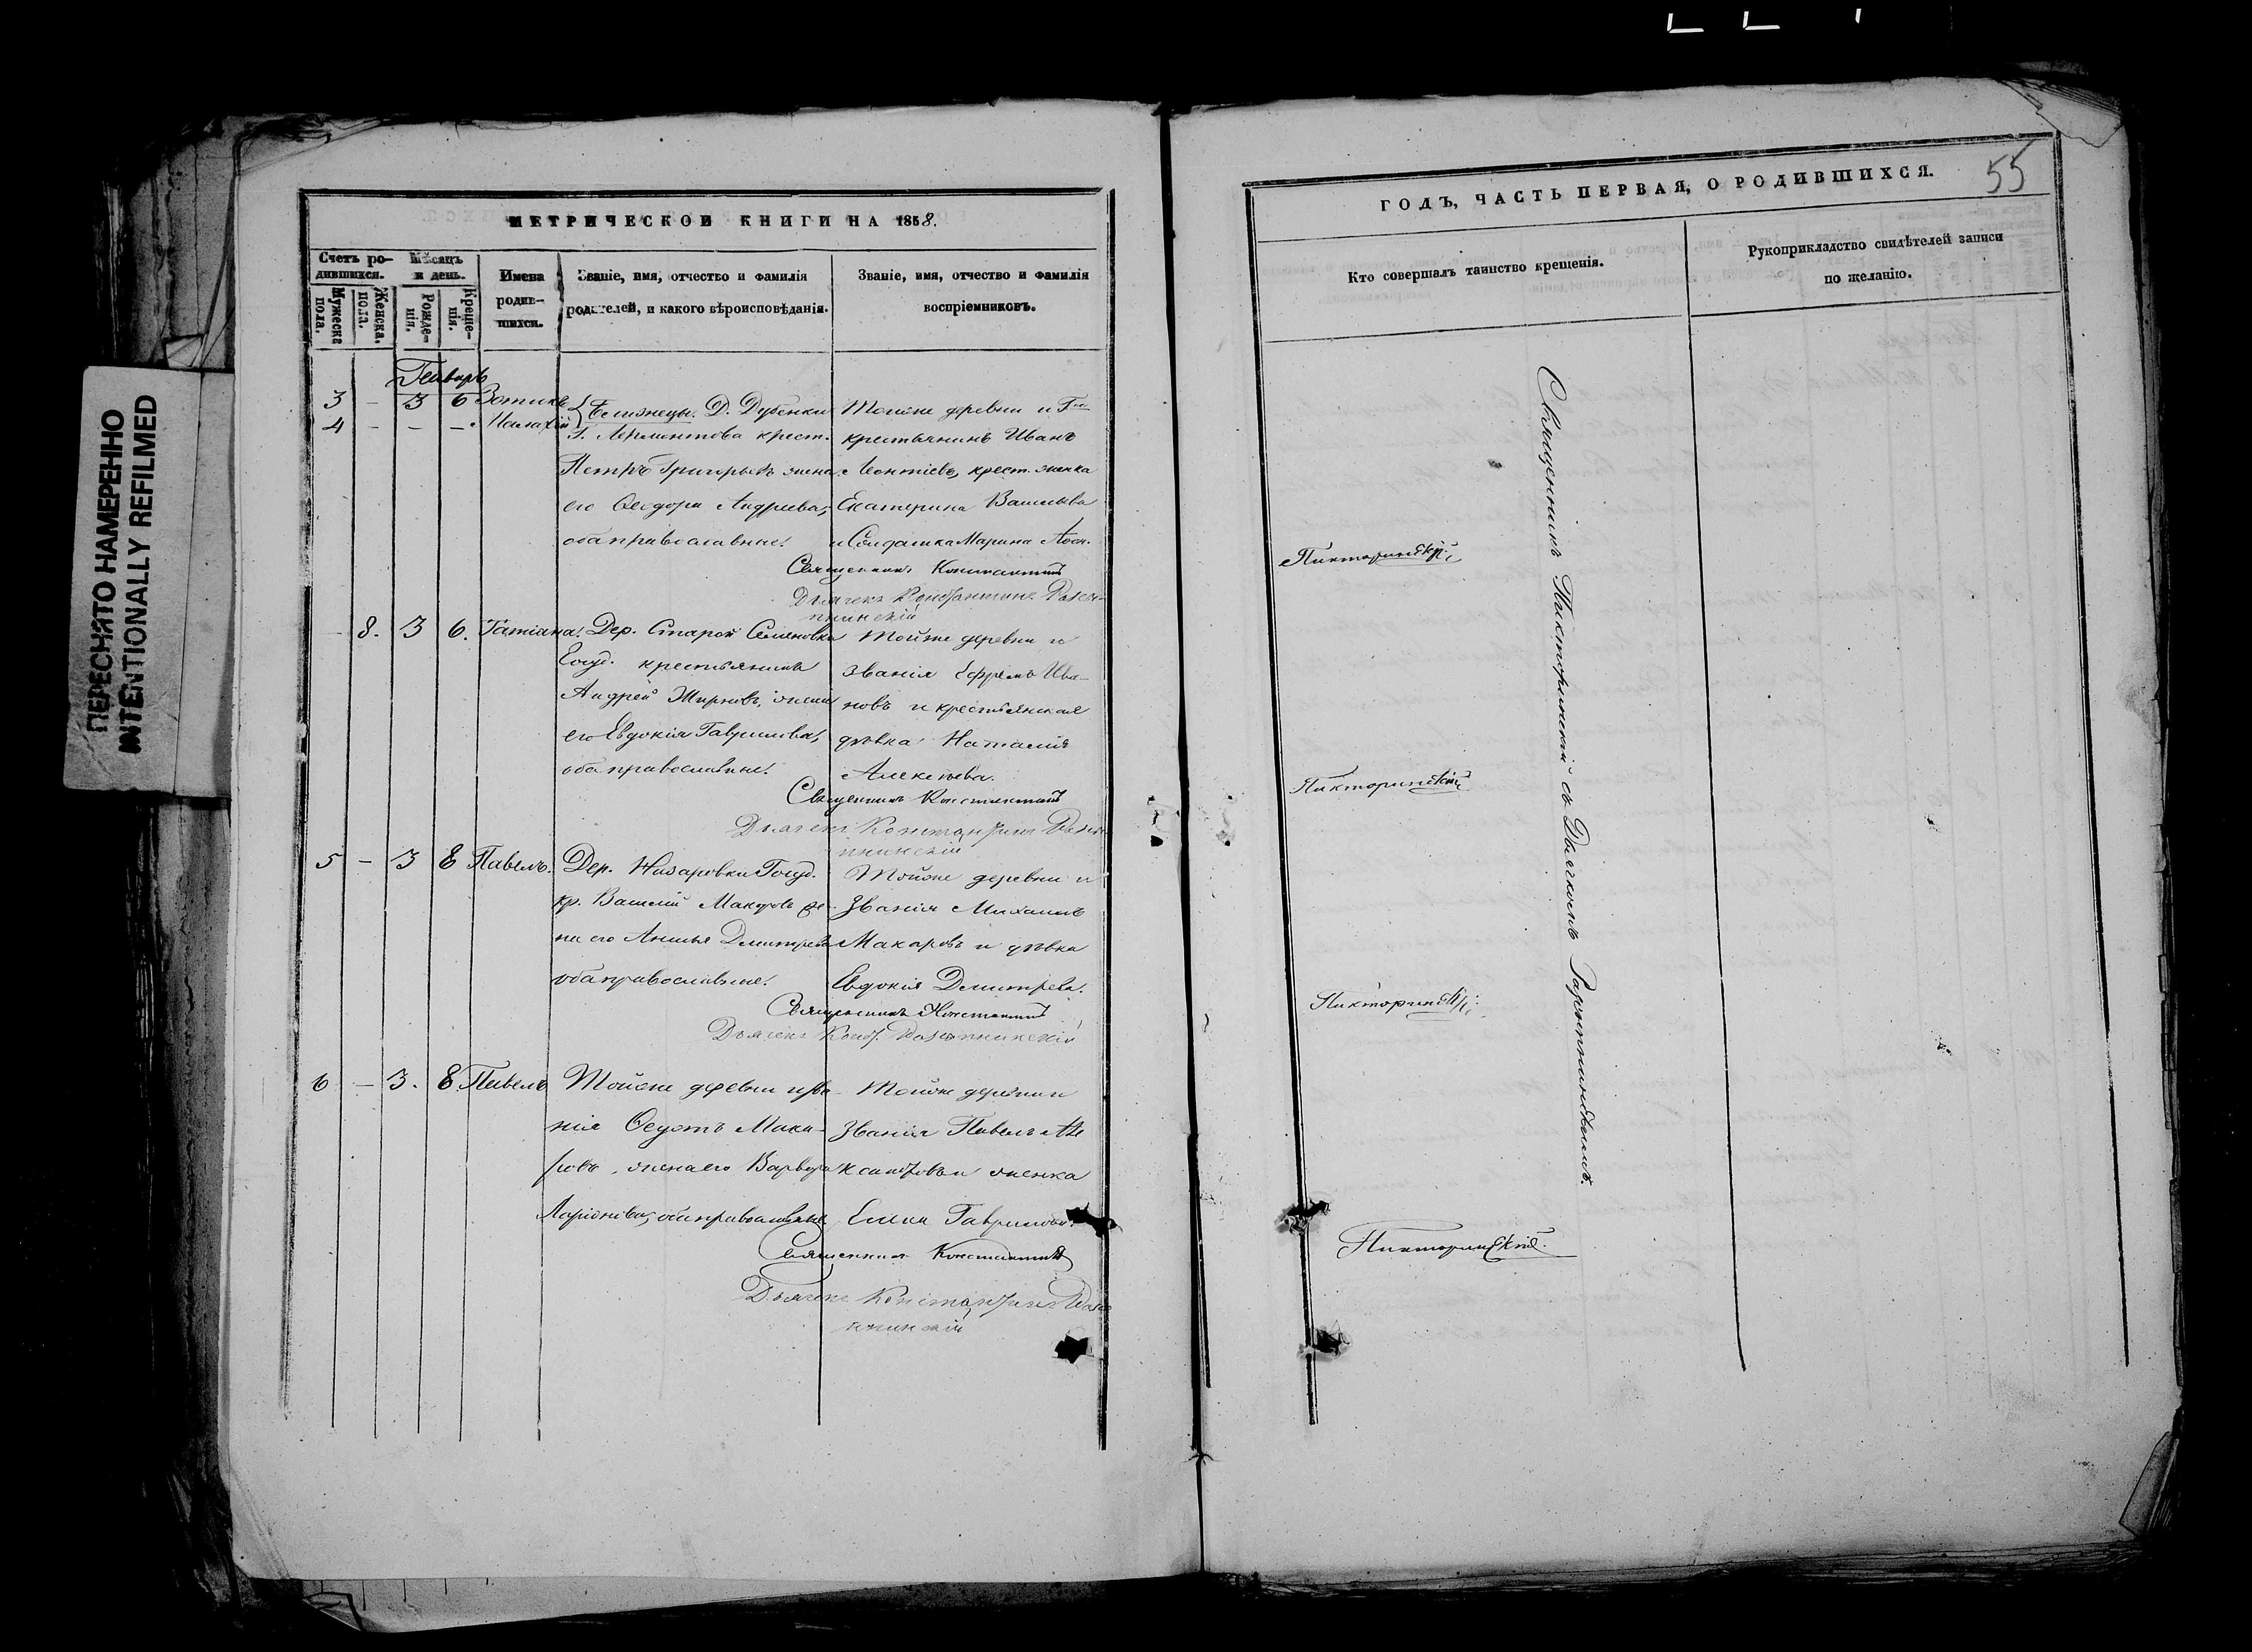 ПЕРЕСНЯТО НАМЕРЕННО
INTENTIONALLY REFILMED
МЕТРИЧЕСКОЙ КНИГИ НА 1858.
Счетъ ро-
дившихся.
Мужеска
пола.
Женска.
пола.
Мѣсяцъ
и день.
Рожде-
нія.
Креще-
нія.
Имена
родив-
шихся.
Званіе, имя, отчество и фамилія
родителей, и какого вѣроисповѣданія.
Званіе, имя, отчество и фамилія
воспріемниковъ.
Генварь
3 - 3 6
4 - - -
Близнецы. Д. Дубенки
Г. Лермонтова крест.
Петръ Григорьевъ жена
его Ѳеодора Андреева,
оба православные.
Тойже деревни и Гна
крестьянинъ Иванъ
Леонтіевъ, крест. женка
Екатерина Васильева
и Солдатка Марина Леон.
Священникъ Константинъ
Дьячекъ Константинъ
8. 3 6. Татіана.
Дер. Старой Семеновки
Госуд. крестьянинъ
Андрей жена
его Евдокія Гаврилова,
оба православные.
Тойже деревни и
званія Ефремъ Ива-
новъ и крестьянская
дѣвка Наталія
Алексѣева.
Священникъ Константинъ
Дьячекъ Константинъ
5 - 3 8 Павелъ.
Дер. Назаровки Госуд.
кр. Василій Макаровъ же-
на его Анисья Димитріева
оба православные.
Тойже деревни и
званія Михаилъ
Макаровъ и дѣвка
Евдокія Димитріева.
Священникъ Константинъ
Дьячекъ Конст.
6 - 3. 8 Павелъ
Тойже деревни и зва-
нія Ѳедотъ Мака-
ровъ, жена его Варвара
Ларіонова, оба православные
Тойже деревни и
званія Павелъ Але
ксандровъ и женка
Елена Гаврилова.
Священникъ Константинъ
Дьячекъ Константинъ
ГОДЪ, ЧАСТЬ ПЕРВАЯ, О РОДИВШИХСЯ.
55
Кто совершалъ таинство крещенія.
Рукоприкладство свидѣтелей записи
по желанію.
Священникъ Пикторинскій съ Дьячкомъ
Пикторинскій
Пикторинскій
Пикторинскій
Пикторинскій